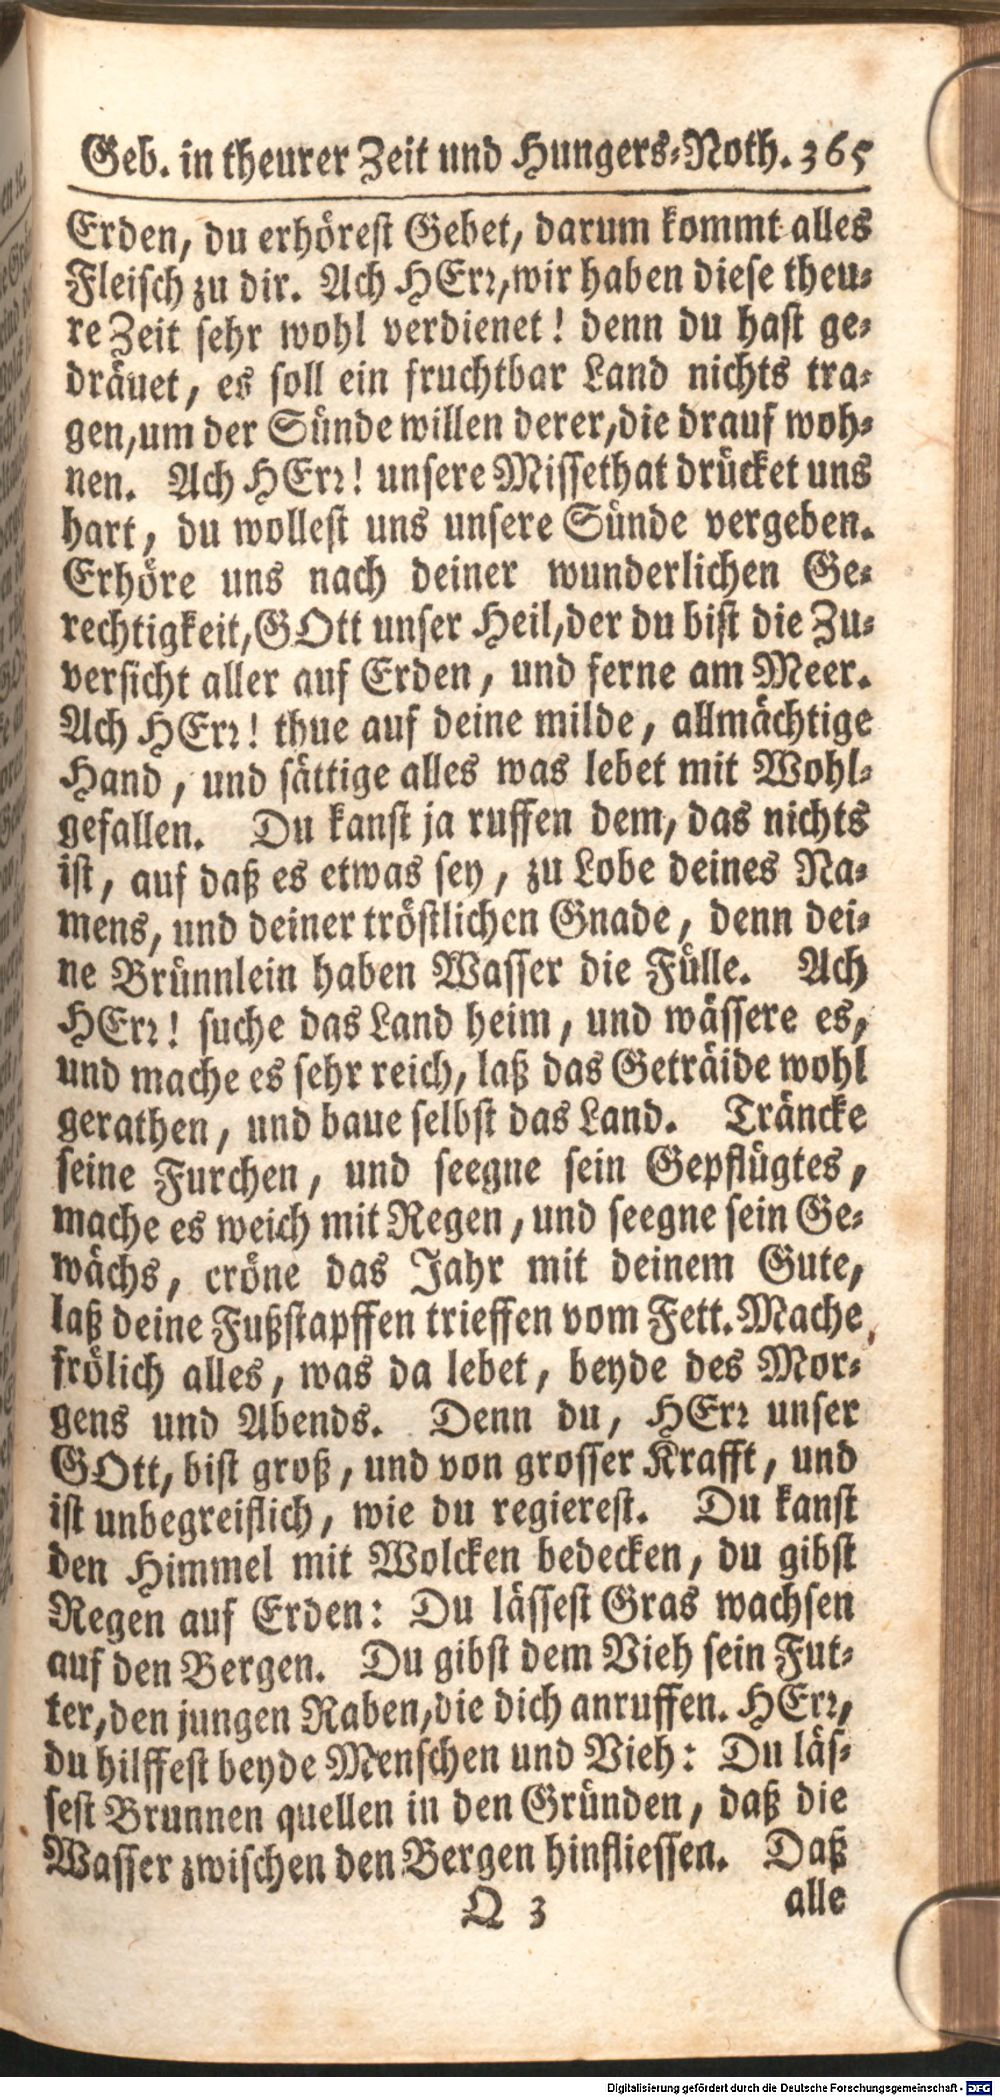 Geb. in theurer Zeit und Hungers-Noth. 365
Erden, du erhörest Gebet, darum kommt alles
Fleisch zu dir. Ach HErr, wir haben diese theu-
re Zeit sehr wohl verdienet! denn du hast ge-
dräuet, es soll ein fruchtbar Land nichts tra-
gen, um der Sünde willen derer, die drauf woh-
nen. Ach HErr! unsere Missethat drücket uns
hart, du wollest uns unsere Sünde vergeben.
Erhöre uns nach deiner wunderlichen Ge-
rechtigkeit, GOtt unser Heil, der du bist die Zu-
versicht aller auf Erden, und ferne am Meer.
Ach HErr! thue auf deine milde, allmächtige
Hand, und sättige alles was lebet mit Wohl-
gefallen. Du kanst ja ruffen dem, das nichts
ist, auf daß es etwas sey, zu Lobe deines Na-
mens, und deiner tröstlichen Gnade, denn dei-
ne Brünnlein haben Wasser die Fülle. Ach
HErr! suche das Land heim, und wässere es,
und mache es sehr reich, laß das Geträide wohl
gerathen, und baue selbst das Land. Träncke
seine Furchen, und seegne sein Gepflügtes,
mache es weich mit Regen, und seegne sein Ge-
wächs, cröne das Jahr mit deinem Gute,
laß deine Fußstapffen trieffen vom Fett. Mache
frölich alles, was da lebet, beyde des Mor-
gens und Abends. Denn du, HErr unser
GOtt, bist groß, und von grosser Krafft, und
ist unbegreiflich, wie du regierest. Du kanst
den Himmel mit Wolcken bedecken, du gibst
Regen auf Erden: Du lässest Gras wachsen
auf den Bergen. Du gibst dem Vieh sein Fut-
ter, den jungen Raben, die dich anruffen. HErr,
du hilffest beyde Menschen und Vieh: Du läs-
sest Brunnen quellen in den Gründen, daß die
Wasser zwischen den Bergen hinfliessen. Daß
Q 3 alle
Digitalisierung gefördert durch die Deutsche Forschungsgemeinschaft - DFG